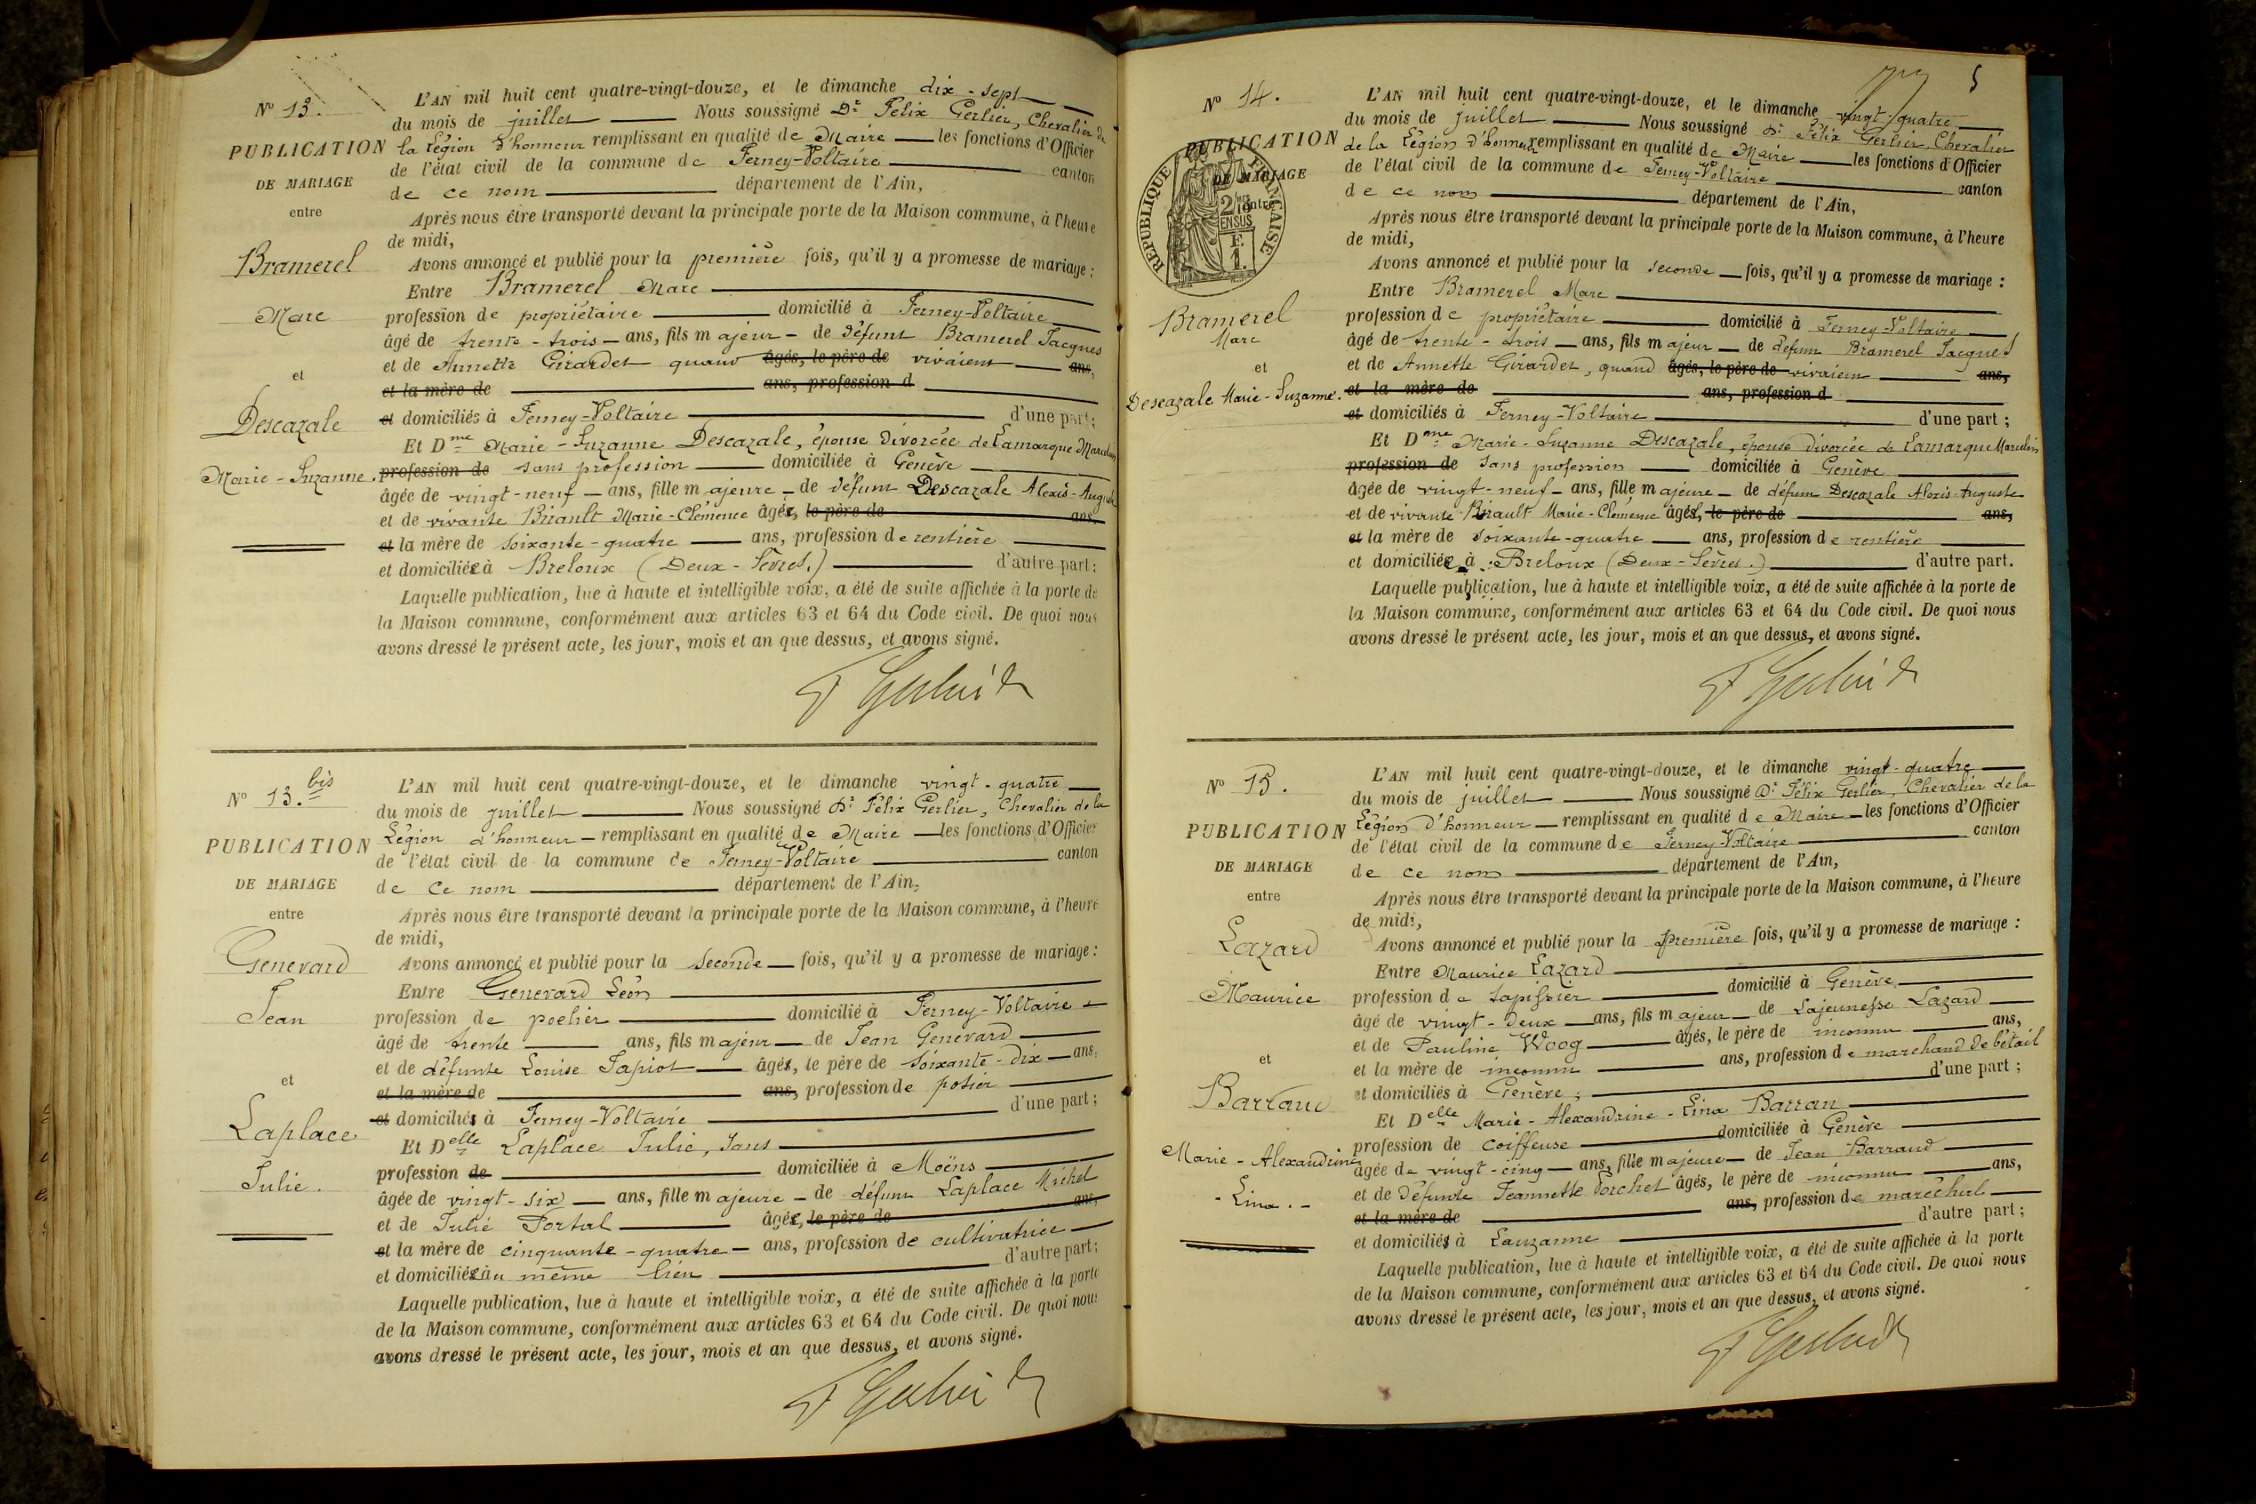 N° 13.
PUBLICATION
DE MARIAGE
entre
Bramerel
Marc
et
Descazale
Marie-Suzanne.
L'AN mil huit cent quatre-vingt-douze, et le dimanche dix-sept
du mois de juillet Nous soussigné Dr Félix Gerlier, Chevalier de
la Légion d'honneur remplissant en qualité de Maire les fonctions d'Officier
de l'état civil de la commune de Ferney-Voltaire canton
de ce nom département de l'Ain,
Après nous être transporté devant la principale porte de la Maison commune, à l'heure
de midi,
Avons annoncé et publié pour la première fois, qu'il y a promesse de mariage :
Entre Bramerel Marc
profession de propriétaire domicilié à Ferney-Voltaire
âgé de trente-trois ans, fils majeur de défunt Bramerel Jacques
et de Annette Girardet quand âgés, le père de vivaient ans,
et la mère de ans, profession d
et domiciliés à Ferney-Voltaire d'une part ;
Et Dme Marie-Suzanne Descazale, épouse divorcée de Lamarque Marcelin
profession de sans profession domiciliée à Genève
âgée de vingt-neuf ans, fille majeure de défunt Descazale Alexis-Auguste
et de vivante Birault Marie-Clémence âgée, le père de ans,
et la mère de soixante-quatre ans, profession de rentière
et domiciliée à Breloux (Deux-Sèvres.) d'autre part :
Laquelle publication, lue à haute et intelligible voix, a été de suite affichée à la porte de
la Maison commune, conformément aux articles 63 et 64 du Code civil. De quoi nous
avons dressé le présent acte, les jour, mois et an que dessus, et avons signé.
F Gerlier Dr
N° 13. bis
PUBLICATION
DE MARIAGE
entre
Genevard
Jean
et
Laplace
Julie.
L'AN mil huit cent quatre-vingt-douze, et le dimanche vingt-quatre
du mois de juillet Nous soussigné Dr Félix Gerlier, Chevalier de la
Légion d'honneur remplissant en qualité de Maire les fonctions d'Officier
de l'état civil de la commune de Ferney-Voltaire canton
de ce nom département de l'Ain,
Après nous être transporté devant la principale porte de la Maison commune, à l'heure
de midi,
Avons annoncé et publié pour la seconde fois, qu'il y a promesse de mariage :
Entre Genevard Léon
profession de poelier domicilié à Ferney-Voltaire
âgé de trente ans, fils majeur de Jean Genevard
et de défunte Louise Tapiot âgés, le père de soixante-dix ans,
et la mère de ans, profession de potier
et domiciliés à Ferney-Voltaire d'une part ;
Et Delle Laplace Julie, sans
profession de domiciliée à Moëns
âgée de vingt-six ans, fille majeure de défunt Laplace Michel
et de Julie Portal âgée, le père de ans,
et la mère de cinquante-quatre ans, profession de cultivatrice
et domiciliée au même lieu d'autre part ;
Laquelle publication, lue à haute et intelligible voix, a été de suite affichée à la porte
de la Maison commune, conformément aux articles 63 et 64 du Code civil. De quoi nous
avons dressé le présent acte, les jour, mois et an que dessus, et avons signé.
F Gerlier Dr
5
N° 14.
PUBLICATION
DE MARIAGE
entre
RÉPUBLIQUE FRANÇAISE
2/10 EN SUS
F.
1.
Bramerel
Marc
et
Descazale Marie-Suzanne.
L'AN mil huit cent quatre-vingt-douze, et le dimanche vingt-quatre
du mois de juillet Nous soussigné Dr Félix Gerlier, Chevalier
de la Légion d'honneur remplissant en qualité de Maire les fonctions d'Officier
de l'état civil de la commune de Ferney-Voltaire canton
de ce nom département de l'Ain,
Après nous être transporté devant la principale porte de la Maison commune, à l'heure
de midi,
Avons annoncé et publié pour la seconde fois, qu'il y a promesse de mariage :
Entre Bramerel Marc
profession de propriétaire domicilié à Ferney-Voltaire
âgé de trente-trois ans, fils majeur de défunt Bramerel Jacques
et de Annette Girardet, quand âgés, le père de vivaient ans,
et la mère de ans, profession d
et domiciliés à Ferney-Voltaire d'une part ;
Et Dme Marie-Suzanne Descazale, épouse divorcée de Lamarque Marcelin
profession de sans profession domiciliée à Genève
âgée de vingt-neuf ans, fille majeure de défunt Descazale Alexis-Auguste
et de vivante Birault Marie-Clémence âgée, le père de ans,
et la mère de soixante-quatre ans, profession de rentière
et domiciliée à : Breloux (Deux-Sèvres.) d'autre part.
Laquelle publication, lue à haute et intelligible voix, a été de suite affichée à la porte de
la Maison commune, conformément aux articles 63 et 64 du Code civil. De quoi nous
avons dressé le présent acte, les jour, mois et an que dessus, et avons signé.
F Gerlier Dr
N° 15.
PUBLICATION
DE MARIAGE
entre
Lazard
Maurice
et
Barraud
Marie-Alexandrine
-Lina.-
L'AN mil huit cent quatre-vingt-douze, et le dimanche vingt-quatre
du mois de juillet Nous soussigné Dr Félix Gerlier, Chevalier de la
Légion d'honneur remplissant en qualité de Maire les fonctions d'Officier
de l'état civil de la commune de Ferney-Voltaire canton
de ce nom département de l'Ain,
Après nous être transporté devant la principale porte de la Maison commune, à l'heure
de midi,
Avons annoncé et publié pour la première fois, qu'il y a promesse de mariage :
Entre Maurice Lazard
profession de tapissier domicilié à Genève
âgé de vingt-deux ans, fils majeur de Lajeunesse Lazard
et de Pauline Woog âgés, le père de inconnu ans,
et la mère de inconnu ans, profession de marchand de bétail
et domiciliés à Genève ; d'une part ;
Et Delle Marie-Alexandrine-Lina Barran
profession de coiffeuse domiciliée à Genève
âgée de vingt-cinq ans, fille majeure de Jean Barraud
et de défunte Jeannette Porchet âgés, le père de inconnu ans,
et la mère de ans, profession de maréchal
et domiciliés à Lauzanne d'autre part ;
Laquelle publication, lue à haute et intelligible voix, a été de suite affichée à la porte
de la Maison commune, conformément aux articles 63 et 64 du Code civil. De quoi nous
avons dressé le présent acte, les jour, mois et an que dessus, et avons signé.
F Gerlier Dr